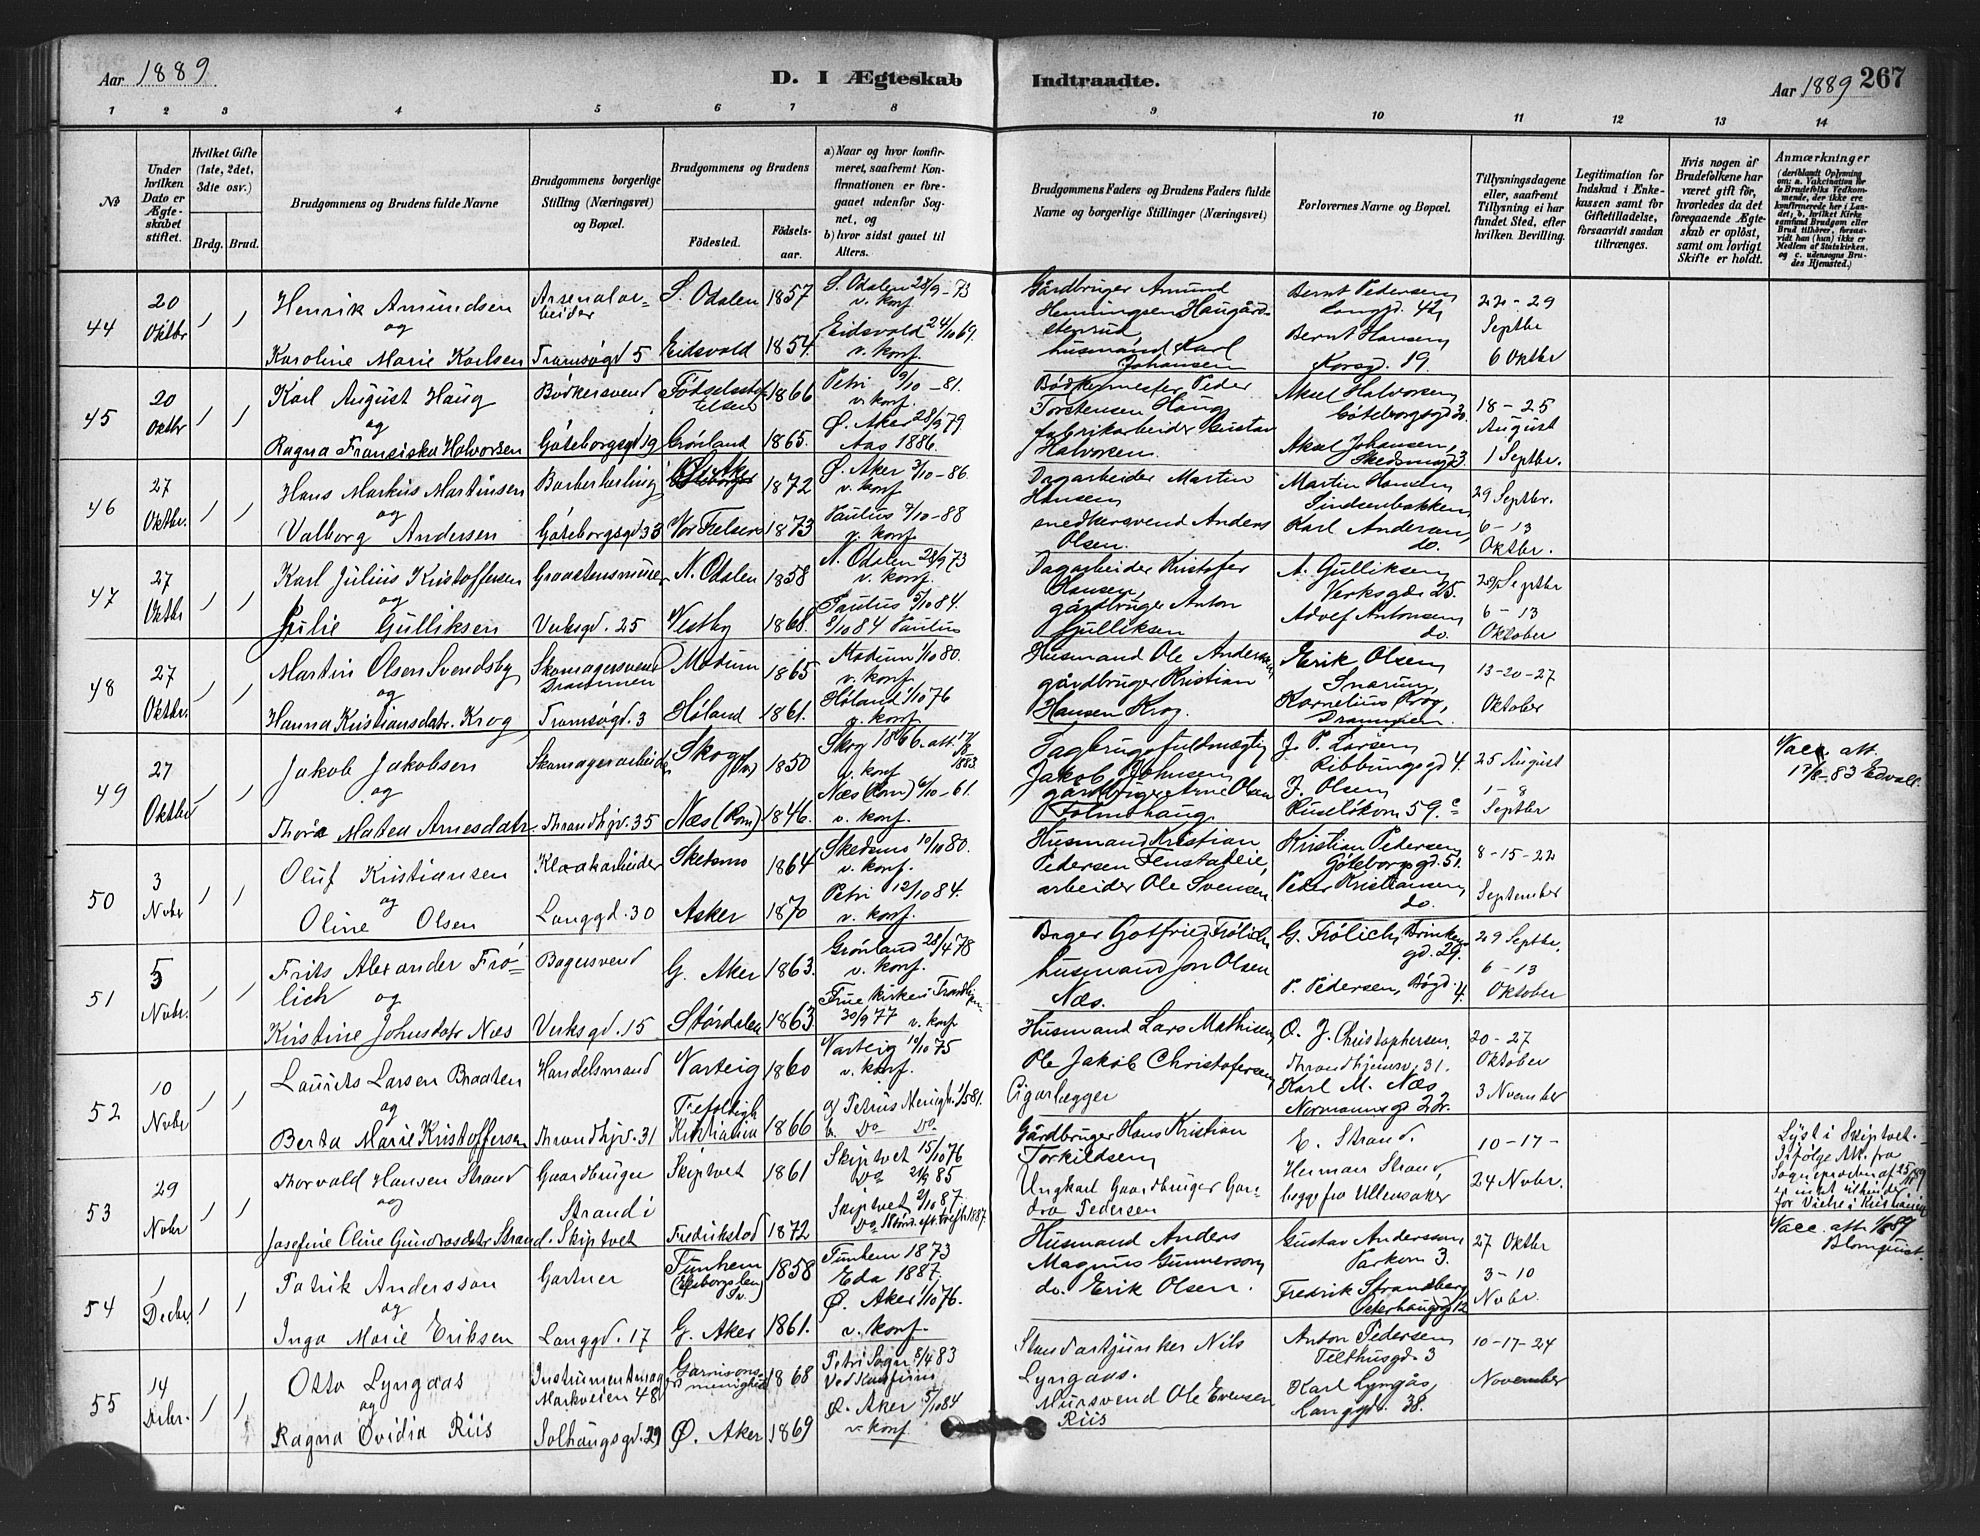 Aar 1889
D. I Ægteskab
Indtraadte.
Aar 1889
267
1 2 3 4 5 6 7 8 9 10 11 12 13 14
№
Under hvilken Dato er Ægteskabet stiftet.
Hvilket Gifte (1ste, 2det, 3die osv.)
Brdg. Brud.
Brudgommens og Brudens fulde Navne
Brudgommens borgerlige Stilling (Næringsvei) og Bopæl.
Brudgommens og Brudens
Fødested.
Fødselsaar.
a) Naar og hvor konfirmeret, saafremt Konfirmationen er foregaaet udenfor Sognet, og
b) hvor sidst gaaet til Alters.
Brudgommens Faders og Brudens Faders fulde Navne og borgerlige Stillinger (Næringsvei)
Forlovernes Navne og Bopæl.
Tillysningsdagene eller, saafremt Tillysning ei har fundet Sted, efter hvilken Bevilling.
Legitimation for Indskud i Enkekassen samt for Giftetilladelse, forsaavidt saadan tiltrænges.
Hvis nogen af Brudefolkene har været gift før, hvorledes da det foregaaende Ægteskab er opløst, samt om lovligt Skifte er holdt.
Anmærkninger
44
20 Oktbr
Henrik Amundsen
og
Karoline Marie Karlsen
Arsenalarbeider
Tromsøgd 5
S. Odalen 1857
Eidsvold 1854
S. Odalen 28/9-73
v. konf.
Eidsvold 24/10 69.
v. konf.
Gårdbruger Amund
Henningsen Haugårdstenrud
husmand Karl
Johansen
Bernt Pedersen
Langgd. 42,
Bernt Hansen,
Korsgd. 19.
22-29
Septbr
6 Oktbr
45
20 Oktbr
Karl August Haug
og
Ragna Fransiska Halvorsen
Bødkersvend
Göteborgsgd 19
Fødselsstif-telsen 1866
Grønland 1865.
Petri 9/10-81.
v. konf.
Ø. Aker 28/9 79
Aas 1886.
Bødkermester Peder
Torstensen Haug
fabrikarbeider Gustav
Halvorsen.
Aksel Halvorsen,
Göteborgsgd 30.
Aksel Johansen,
Skedsmogd 3.
18-25
August
1 Septbr.
46
27 Oktbr.
Hans Markus Martinsen
og
Valborg Andersen
Barberlærling
Göteborgsgd 33
Ø. Aker 1872
Vor Frelser 1873
Ø. Aker 3/10-86.
v. konf.
Paulus 7/10-88
v. konf.
Dagarbeider Martin
Hansen,
snedkersvend Anders
Olsen.
Martin Hansen
Lindeenbakken,
Karl Andersen,
do.
29 Septbr.
6-13
Oktbr.
47
27 Oktbr
Karl Julius Kristoffersen
og
Julie Gulliksen
Graastensmurer
Verksgd. 25
N. Odalen 1858
Vestby 1868.
N. Odalen 28/9 73
v. konf.
Paulus 5/10 84.
8/10 84 Paulus
Dagarbeider Kristofer
Hansen,
gårdbruger Anton
Gulliksen
A. Gulliksen,
Verksgd. 25.
Adolf Antonsen,
do.
29/9 Septbr
6-13
Oktober
48
27 Oktbr.
Martin Olsen Svendsby
og
Hanna Kristiansdatr. Krog
Skomagersvend
Drammen
Tromsøgd. 3
Modum 1865
Høland 1861.
Modum 1/10 80.
v. konf.
Høland 1/10 76
v. konf.
Husmand Ole Andersen,
gårdbruger Kristian
Hansen Krog.
Erik Olsen,
Snarum,
Kornelius Krog,
Drammen.
13-20-27
Oktober
49
27 Oktber
Jakob Jakobsen
og
Thora Matea Arnesdatr.
Skomagerarbeider
Throndhjv. 35
Skog 1850
Næs (Rom) 1846.
Skog 1866. att. 17/8 1883
v. konf
Næs (Rom) 6/10-61.
v. konf.
Sagbrugsfuldmægtig
Jakob Johnsen,
gårdbruger Arne Olsen
Tolmshaug
J. P. Larsen
Ribbungsgd 4.
J. Olsen
Ruseløkom 59. c
25 August
1-8
Septbr
Vacc. att.
17/8-83 Edvall.
50
3 Novbr
Oluf Kristiansen
og
Oline Olsen
Kloakarbeider
Langgd. 30
Skedsmo 1864
Asker 1870
Skedsmo 10/10 80.
v. konf.
Petri 12/10 84.
v. konf.
Husmand Kristian
Pedersen Fenstadeie,
arbeider Ole Svensen,
Kristian Pedersen,
Göteborgsgd. 51.
Peder Kristiansen,
do.
8-15-22
September
51
5 Novbr.
Frits Alexander Frølich
og
Kristine Johnsdatr Næs
Bagersvend
Verksgd. 15
G. Aker 1863.
Størdalen 1863.
Grønland 28/4 78
v. konf.
Frue Kirke i Trondhjem
30/9 77 v. konf
Bager Gotfried Frølich
husmand Jon Olsen
Næs.
G. Frølich, Brinken
gd. 29.
P. Pedersen, Bøgd.
4.
29 Septbr.
6-13
Oktober
52
10 Novbr
Laurits Larsen Braaten
og
Berta Marie Kristoffersen
Handelsmand
Throndhjv. 31
Varteig 1860
Trefoldigh. Kristiania 1866
Varteig 10/10 75
v. konf.
a) Petrus Menigh. 1/5 81.
b. Do Do.
Husmand Lars Mathisen,
Ole Jakob Christofersen,
Cigarlægger
O. J. Christophersen,
Throndhjemsv, 31.
Karl M. Næs,
Normannsgd 22.
20-27
Oktober
3 November
53
29 Novbr
Thorvald Hansen Strand
og
Josefine Oline Gundrosdatr Strand.
Gaardbruger
Strand i
Skiptvet
Skiptvet 1861
Fredrikstad 1872
Skiptvet 15/10 76
Do 21/9 85
Skiptvet 2/10 87.
Gårdbruger Hans Kristian
Torkildsen,
Ungkarl Gaardbruger Gundro Pedersen
E. Strand.
Herman Strand,
begge fra Ullensaker
10-17-
24 Novbr.
Lyst i Skiptvet.
Ifølge Att. fra
Sognepræsten af 25/11 89
er intet til hinder
for Vielse i Kristiania
54
1 Decbr.
Patrik Andersson
og
Inga Marie Eriksen
Gartner
Langgd. 17
Tunhem (Elfsborgs len) Sv. 1858
G. Aker 1861.
Tunhem 1873
Eda 1887.
Ø. Aker 1/10 76.
v. konf.
Husmand Anders
Magnus Gunnerson,
do. Erik Olsen.
Gustav Anderssen
Parkvn 3.
Fredrik Strandberg
Peterhaugsgd 12
27 Oktbr
3-10
Novbr.
Vacc. att. 1/6 87
Blomquist.
55
14 Decbr.
Otto Lyngaas
og
Ragna Ovidia Riis
Instrumentmag.
Markveien 48
Solhaugsgd. 29
Garnisons-menighed 1868
Ø. Aker 1869
Petri Sogn 8/4 83
Ved Konfirm
Ø. Aker 5/10 84
v. konf.
Standartjunker Nils
Lyngaas.
Mursvend Ole Evensen
Riis
Anton Pedersen,
Telthusgd. 3
Karl Lyngås,
Langgd. 38.
10-17-24
November